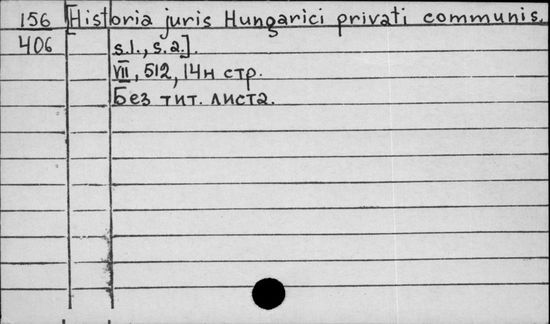 156 [Historia juris Hungarici privati communis.
406 s.l., s.a.].
VII, 512, 14н стр.
Без тит. листа.